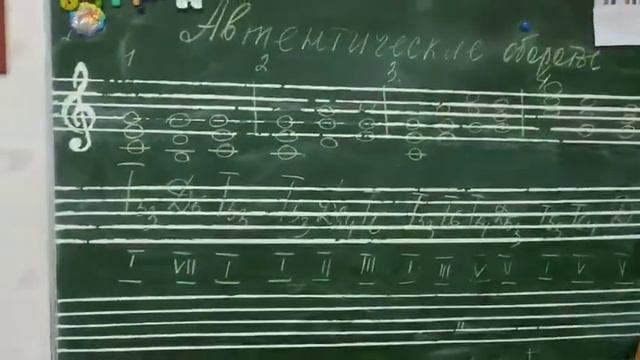 Автентические обороты
1 2 3. 4
T5/3 D6 T5/3 T5/3 D6/4 T6 T5/3 T6 T6/4 D5/3 T5/3 T6/4
I VII I I II III I III V V I V V